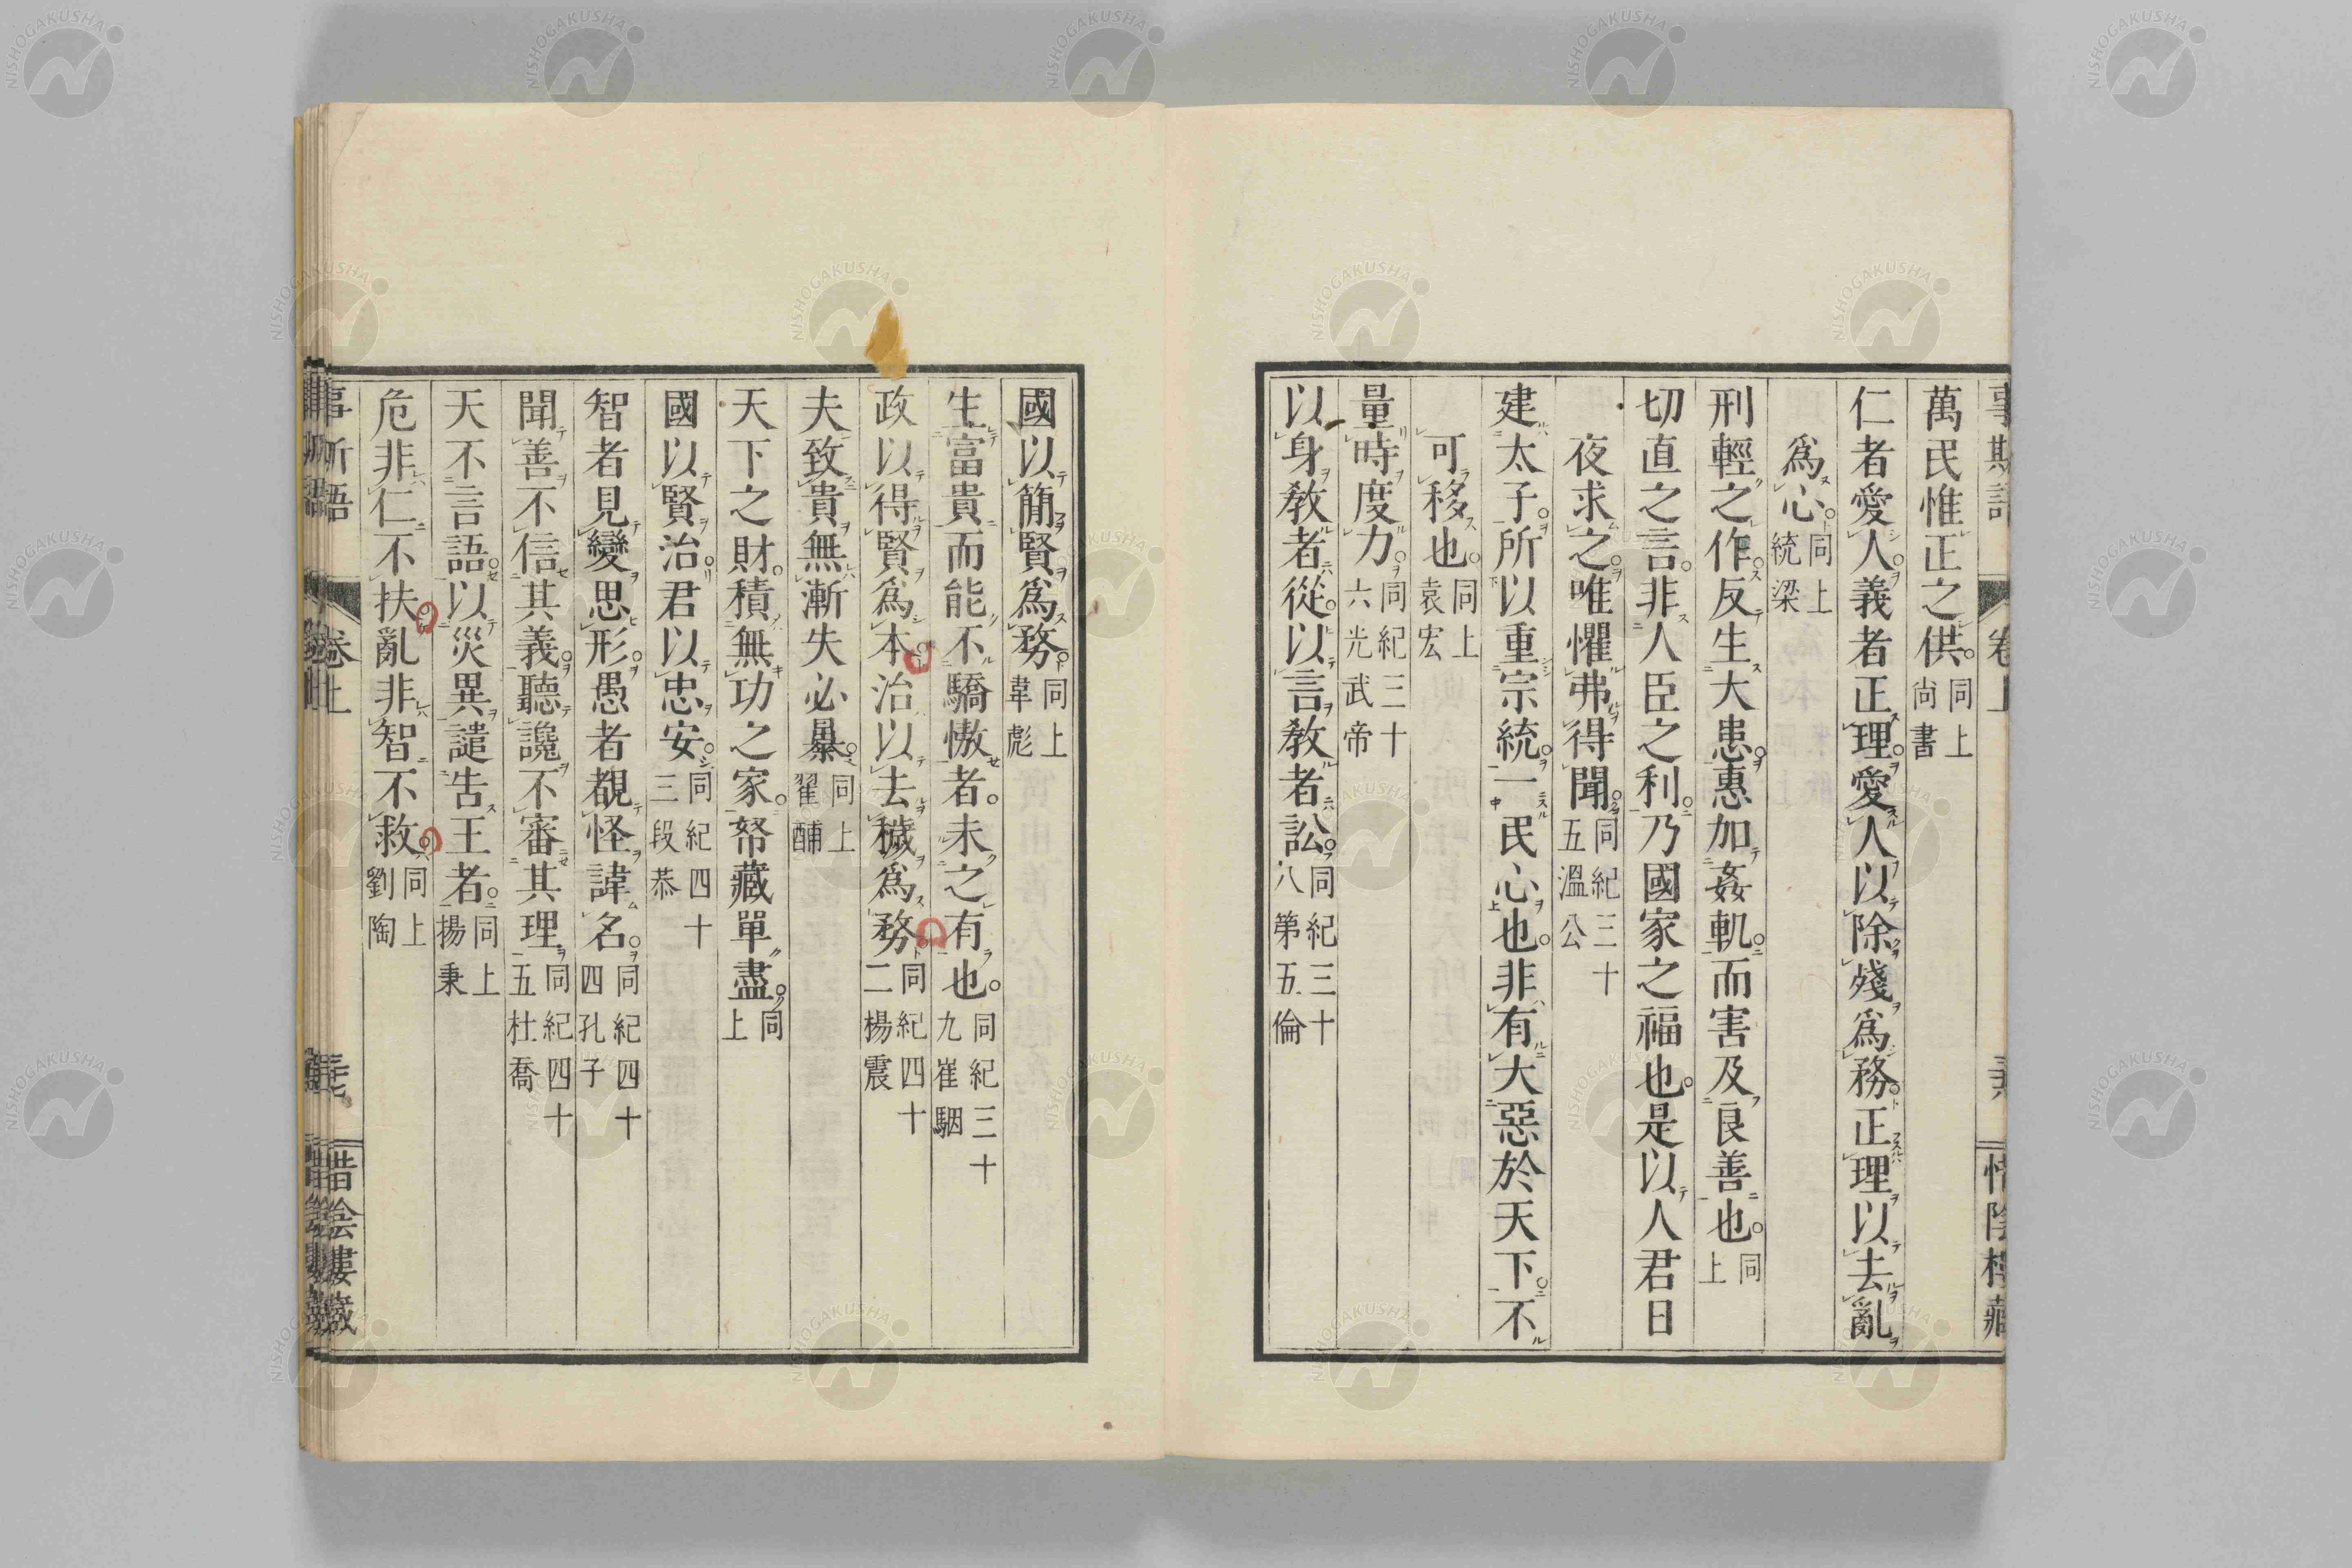 萬民惟正之供。同上尚書
仁者愛人。義者正理。愛人以除殘爲務。正理以去亂
爲心。同上統梁
刑輕之作。反生大患。惠加姦軌。而害及良善也。同上
切直之言。非人臣之利。乃國家之福也。是以人君日
夜求之。唯懼弗得聞。同紀三十五溫公
建太子。所以重宗統。一民心也。非有大惡於天下。不
可移也。同上袁宏
量時度力。同紀三十六光武帝
以身敎者從。以言敎者訟。同紀三十八第五倫
國以簡賢爲務。同上韋彪
生富貴而能不驕慠者。未之有也。同紀三十九崔駰
政以得賢爲本。治以去穢爲務。同紀四十二楊震
夫致貴無漸失必暴。同上翟酺
天下之財。積無功之家。帑藏單盡。同上
國以賢治。君以忠安。同紀四十三段恭
智者見變思形。愚者覩怪諱名。同紀四十四孔子
聞善不信其義。聽讒不審其理。同紀四十五杜喬
天不言語。以災異譴告王者。同上揚秉
危非仁不扶。亂非智不救。同上劉陶
卷上
惜陰樓藏
NISHOGAKUSHA